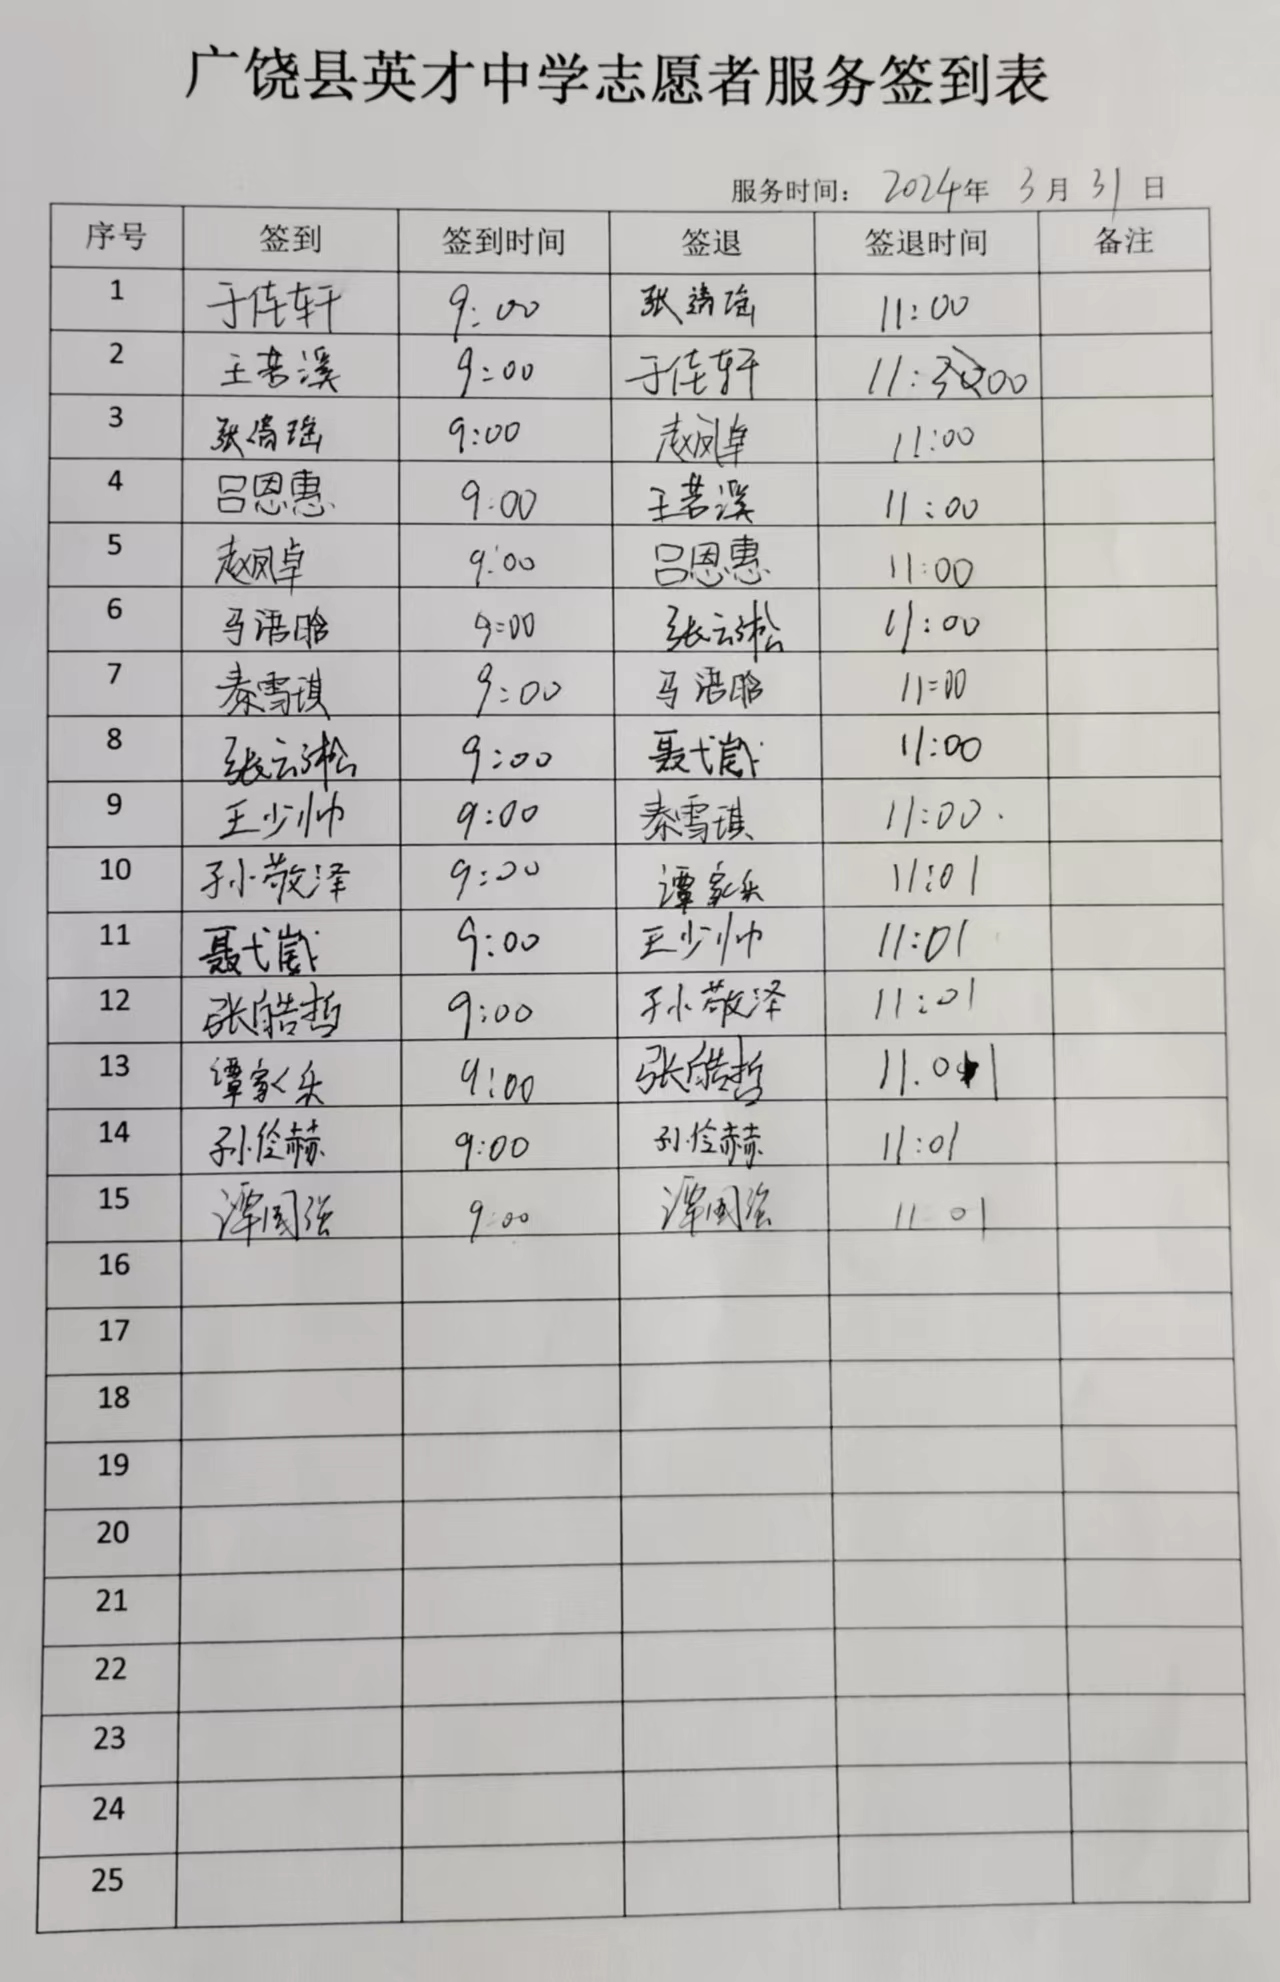 广饶县英才中学志愿者服务签到表
服务时间: 2024年 3月 31日
序号 签到 签到时间 签退 签退时间 备注
1 于佳轩 9:00 张清瑶 11:00
2 王若溪 9:00 于佳轩 11:00
3 张倩瑶 9:00 赵凤卓 11:00
4 吕恩惠 9:00 王若溪 11:00
5 赵凤卓 9:00 吕恩惠 11:00
6 马语晗 9:00 张云淞 11:00
7 秦雪琪 9:00 马语晗 11:00
8 张云淞 9:00 聂弋 11:00
9 王少帅 9:00 秦雪琪 11:00
10 孙敬泽 9:00 谭家乐 11:01
11 聂弋 9:00 王少帅 11:01
12 张皓哲 9:00 孙敬泽 11:01
13 谭家乐 9:00 张皓哲 11:01
14 孙俭赫 9:00 孙俭赫 11:01
15 谭国强 9:00 谭国强 11:01
16
17
18
19
20
21
22
23
24
25